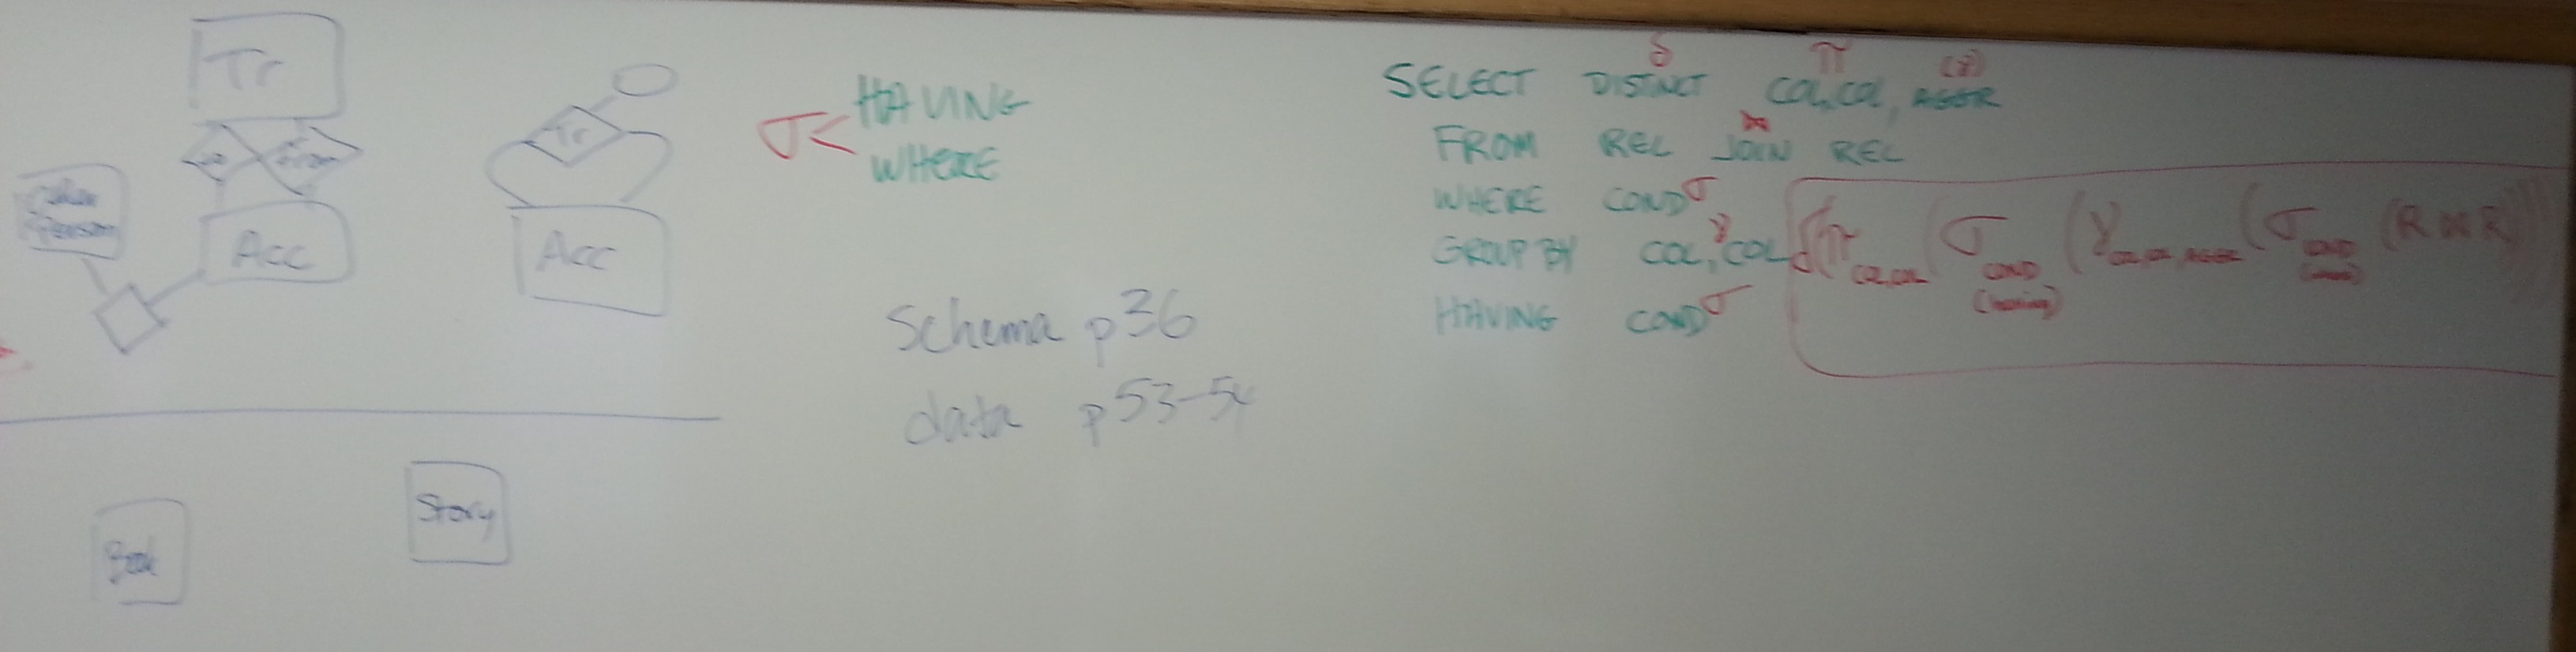 Tr
to
from
Person
Acc
Tr
Acc
Book
Story
σ < HAVING
WHERE
Schema p36
data p53-54
δ π (γ)
SELECT DISTINCT COL, COL, AGGR
⋈
FROM REL JOIN REL
WHERE COND σ
γ
GROUP BY COL, COL
HAVING COND σ
δ(π COL, COL (σ COND (having) (γ COL, COL, AGGR (σ COND (where) (R ⋈ R)))))